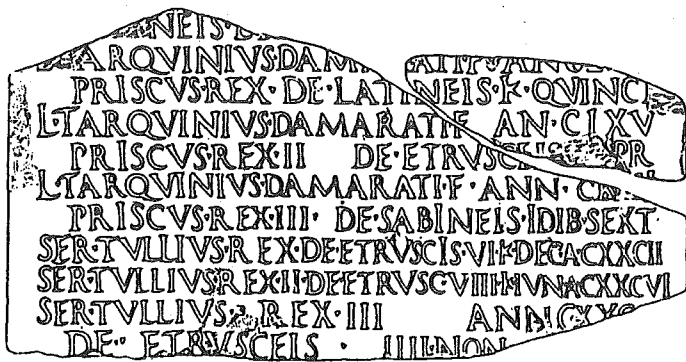 NEIS·D
L·TARQVINIVS·DAMARATI·F·AN
PRISCVS·REX· DE·LATINEIS·K· QVINCT
L·TARQVINIVS·DAMARATI·F AN·CLXV
PRISCVS·REX·II DE·ETRVSCEIS PR
L·TARQVINIVS·DAMARATI·F· ANN·
PRISCVS·REX·III· DE·SABINEIS·IDIB·SEXT
SER·TVLLIVS·REX·DE·ETRVSCIS·VI·K·DEC·ACXXCII
SER·TVLLIVS·REX·II·DE·ETRVSC·VIII·K·IVN·ACXXCVI
SER·TVLLIVS· REX·III ANN·
DE· ETRVSCEIS · IIII·NON